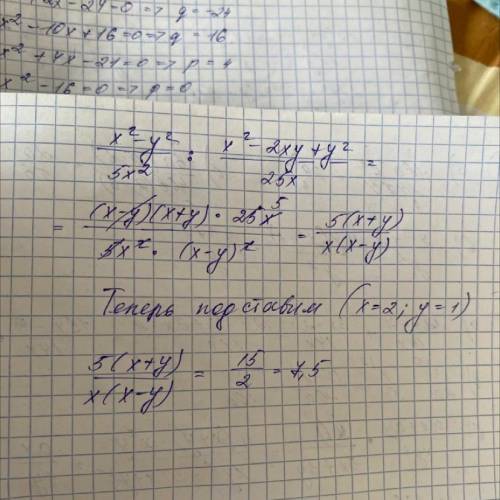 x² - 10x + 16 = 0 => q = 16
x² + 4x - 21 = 0 => p = 4
x² - 16 = 0 => p = 0
x² - y² / 5x² : x² - 2xy + y² / 25x =
= (x-y)(x+y) · 25x 5 / 5x² · (x-y)² = 5(x+y) / x(x-y)
Теперь подставим (x=2; y=1)
5(x+y) / x(x-y) = 15 / 2 = 7,5